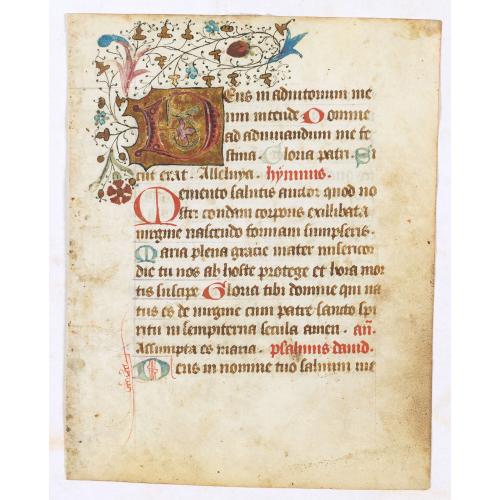 Deus in adiutorium me
um intende Domine
ad adiuuandum me fe
stina Gloria patri. Si
cut erat. Alleluya. hymnus.
Memento salutis auctor quod no
stri condam corporis ex illibata
uirgine nascendo formam sumpseris.
Maria plena gracie mater misericor
die tu nos ab hoste protege et hora mor
tis suscipe Gloria tibi domine qui na
tus es de uirgine cum patre sancto spi
ritu in sempiterna secula amen. an.
Assumpta es maria. psalmus dauid.
Deus in nomine tuo saluum me